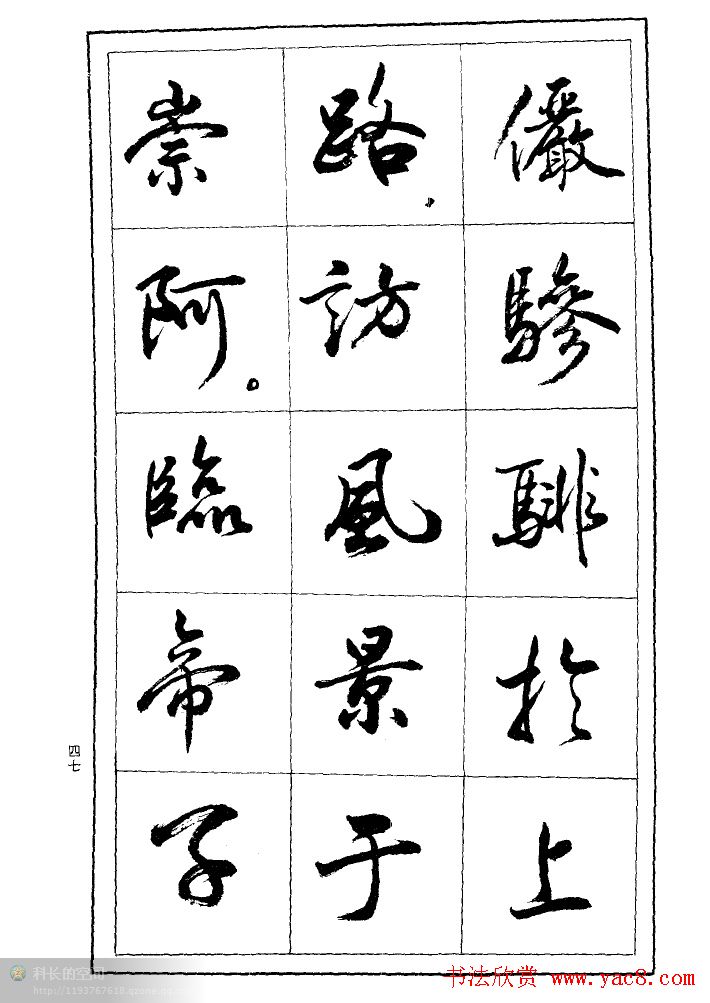 儼驂騑於上
路，訪風景于
崇阿。臨帝子
四七
科长的空间
http://1193767618.qzone.qq.com
书法欣赏 www.yac8.com